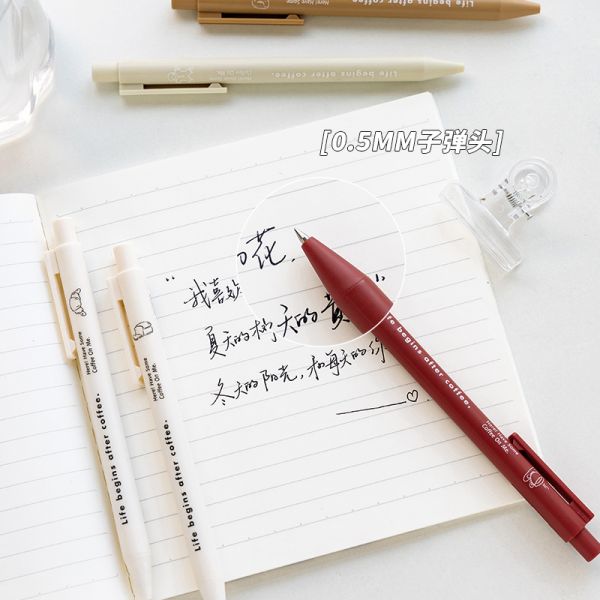 Life begins after coffee.
Here! Have Some
Coffee On Me.
Life begins after coffee.
[0.5MM子弹头]
"我喜欢
夏天的
天的黄
"
冬天的阳光,和每天的你
Here! Have Some
Coffee On Me.
Life begins after coffee.
Here! Have Some
Coffee On Me.
Life begins after coffee.
Life begins after coffee.
Here! Have Some
Coffee On Me.